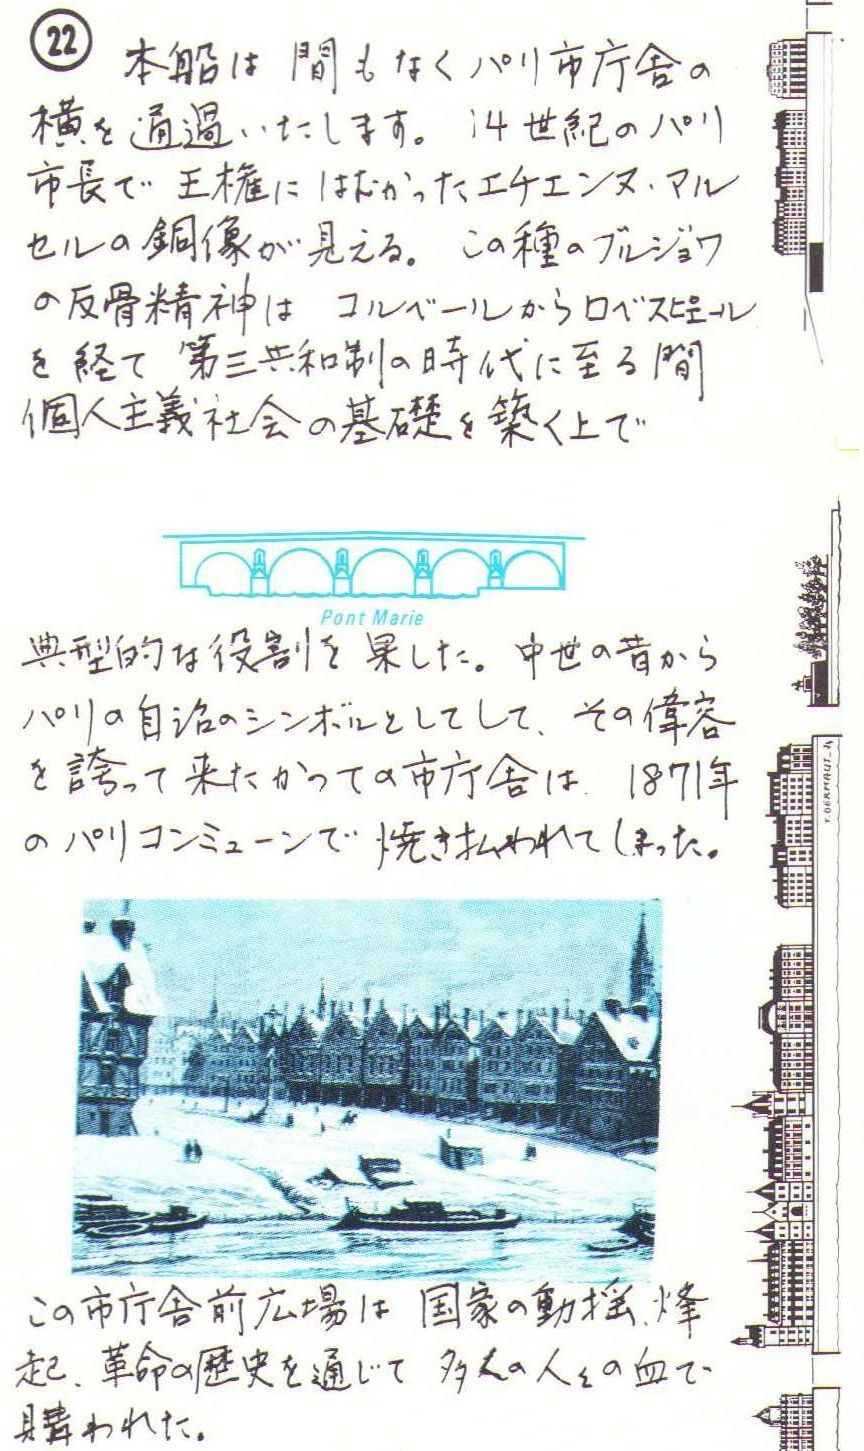 22
本船は 間もなくパリ市庁舎の
横を通過いたします。 14世紀のパリ
市長で 王権にはむかったエチエンヌ・マル
セルの銅像が見える。 この種のブルジョワ
の反骨精神は コルベールからロベスピエール
を経て 第三共和制の時代に至る間
個人主義社会の基礎を築く上で
Pont Marie
典型的な役割を果した。中世の昔から
パリの自治のシンボルとしてして、その偉容
を誇って来たかつての市庁舎は、1871年
のパリコンミューンで 焼き払われてしまった。
T. DERMAUT_
この市庁舎前広場は 国家の動揺、烽
起、革命の歴史を通じて 多太の人々の血で
購われた。